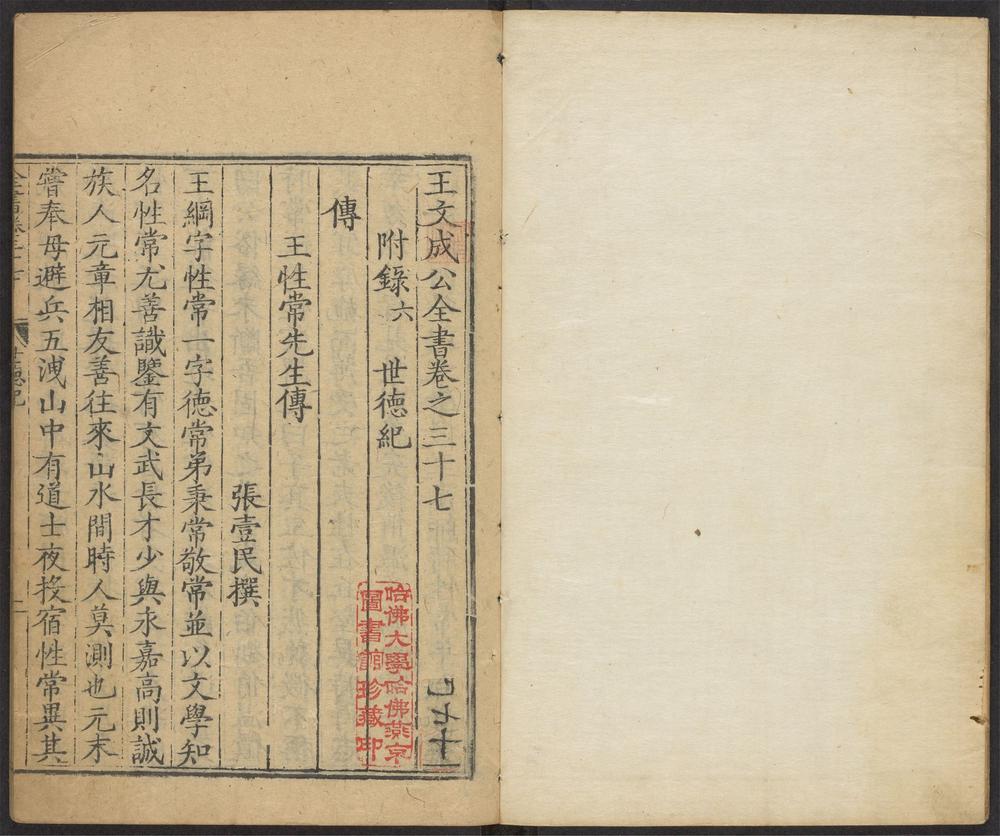 王文成公全書卷之三十七
附錄六　世德紀
傳
王性常先生傳
張壹民撰
王綱字性常一字德常弟秉常敬常並以文學知
名性常尤善識鑒有文武長才少與永嘉高則誠
族人元章相友善往來山水間時人莫測也元末
嘗奉母避兵五洩山中有道士夜投宿性常異其
哈佛大學哈佛燕京
圖書館珍藏印